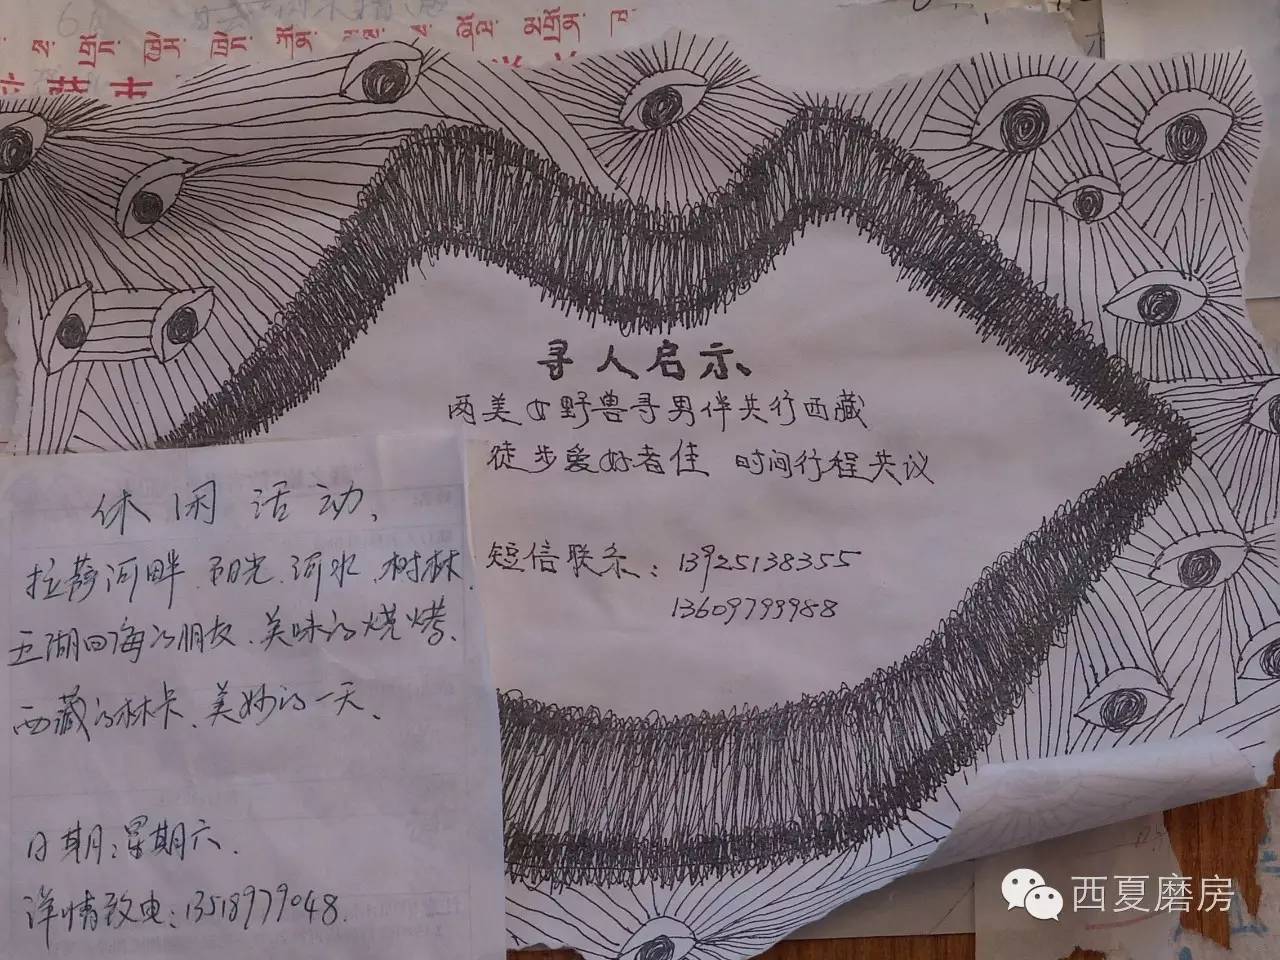 寻人启示
两美女野兽寻男伴共行西藏
徒步爱好者佳 时间行程共议
短信联系：13925138355
13609793988
休闲活动、
拉萨河畔、阳光、河水、树林、
五湖四海的朋友、美味的烧烤、
西藏的林卡、美妙的一天、
日期：星期六.
详情致电：13518979048.
西夏磨房